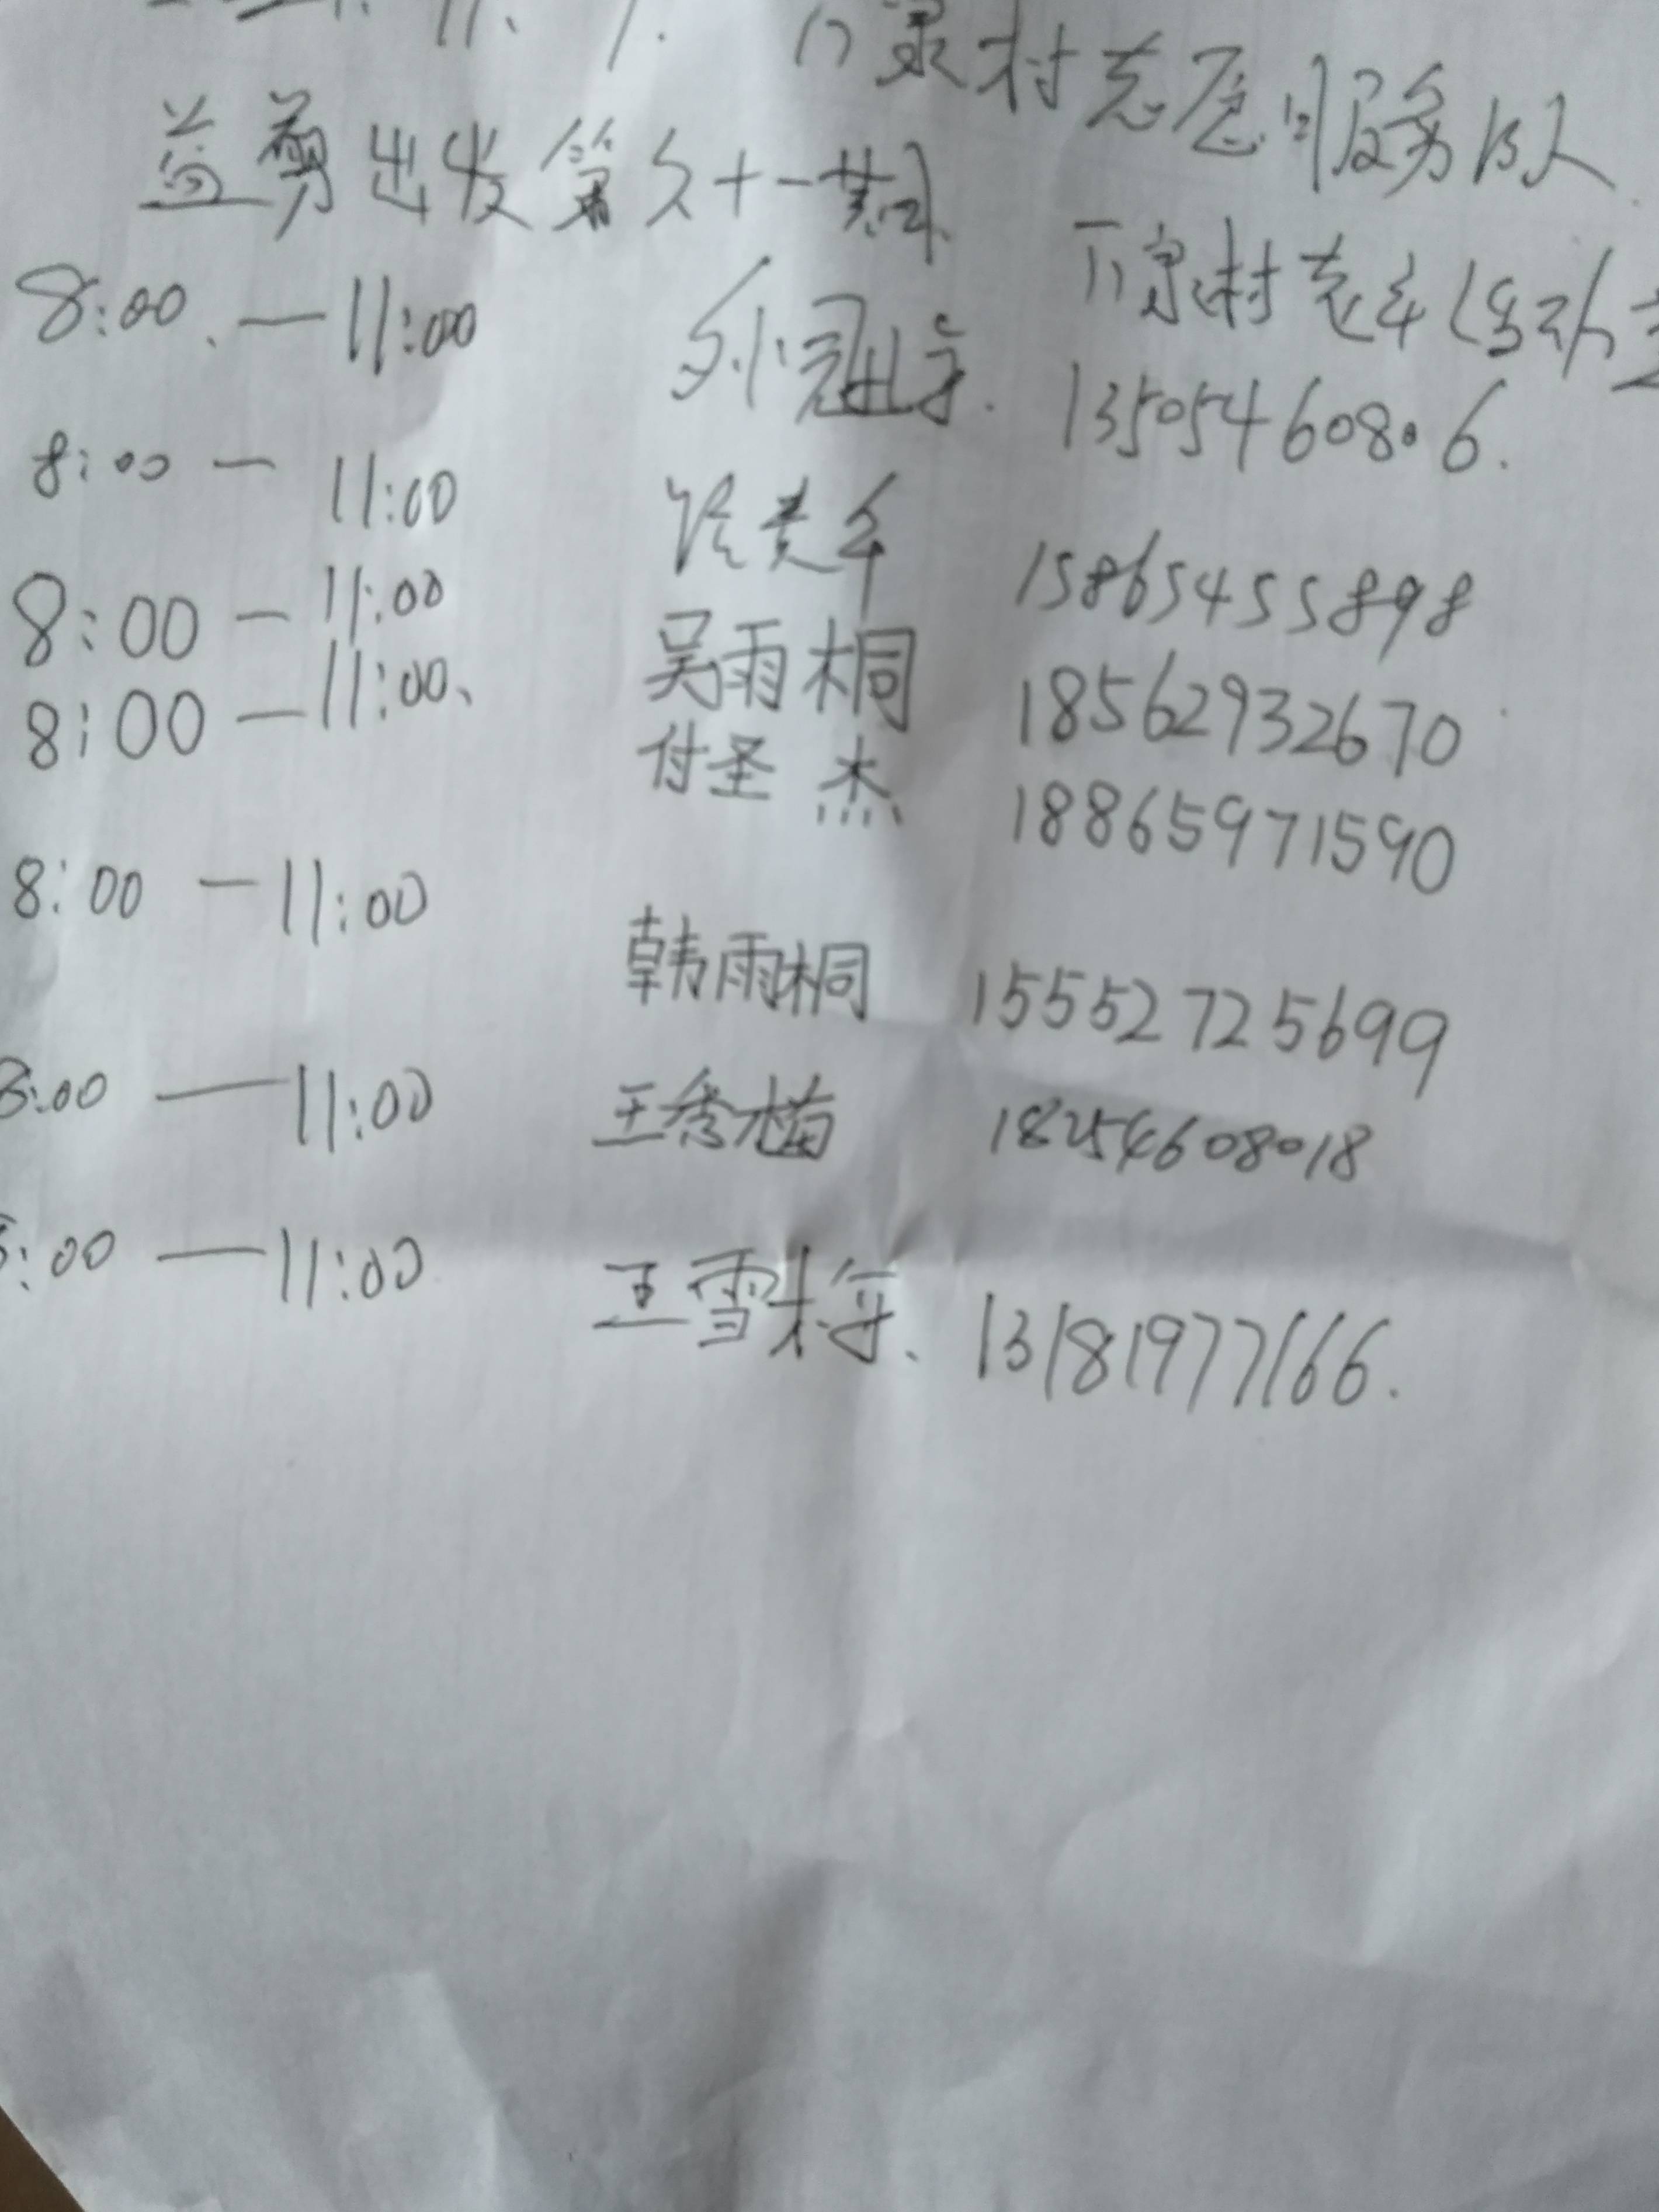 村志愿服务队
益剪出发第九十一期
村老年活动
8:00 — 11:00 13505460806.
8:00 — 11:00 15865455898
8:00 — 11:00 吴雨桐 18562932670
8:00 — 11:00、 付圣杰 18865971590
8:00 — 11:00 韩雨桐 15552725699
8:00 — 11:00 王秀菊 18254608018
:00 — 11:00 王雪梅、 13181977166.